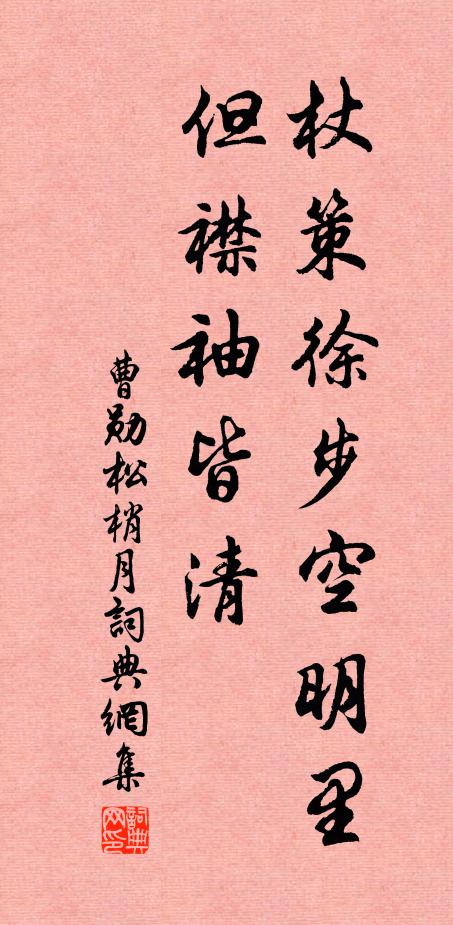 杖策徐步空明里
但襟袖皆清
曹勛松梢月詞典網集
詞典网印